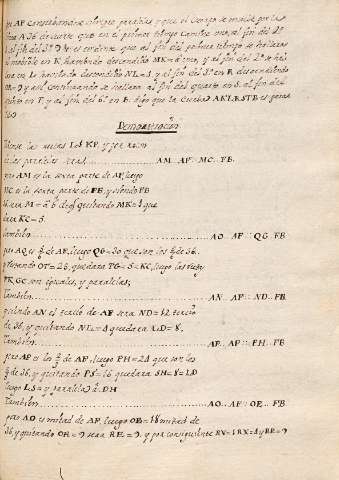 por AF conservandose siempre paralela, y que el cuerpo se mueve por la
linea A 36 de suerte que en el primer tiempo camine uno, al fin del 2º
al fin del 3º 9. es evidente que al fin del primer tiempo se hallara
el mobile en K haviendo descendido MK=á uno, y al fin del 2º se ha-
lara en L. haviendo descendido NL=4, y al fin del 3º en R descendiendo
OR=9 y assi continuando se hallara al fin del quarto en S. al fin del
quinto en T. y al fin del 6º en B. digo que la curba AKLRSTB es parabo
Demonstracion
Tirense las rectas LS KP. y por razon
de las paralelas seran AM. AF :: MC. FB.
pero AM es la sexta parte de AF, luego
MC es la sexta parte de FB, y siendo FB
quitando MK=1 que
dara KC=5.
Tambien AQ . AF :: QG . FB
pero AQ es 5/6 de AF, luego QG=30 que son los 5/6 de 36.
quitando QT=25, quedara TG=5=KC, luego las rectas
TK GC son iguales, y paralelas;
Tambien AN . AF :: ND . FB
y siendo AN el tercio de AF sera ND=12 tercio
de 36, y quitando NL=4 quedara LD=8,
Tambien AP . AF :: PH . FB
pero AP es los 2/3 de AF, luego PH=24 que son los
2/3 de 36, y quitando PS=16 quedara SH=8=LD
luego LS= y paralela á DH
Tambien AO . AF :: OE . FB
pero AO es mitad de AF, luego OE=18 mitad de
36, y quitando OR=9 sera RE=9. y por consiguiente RV=1 RX=4 y RE=9